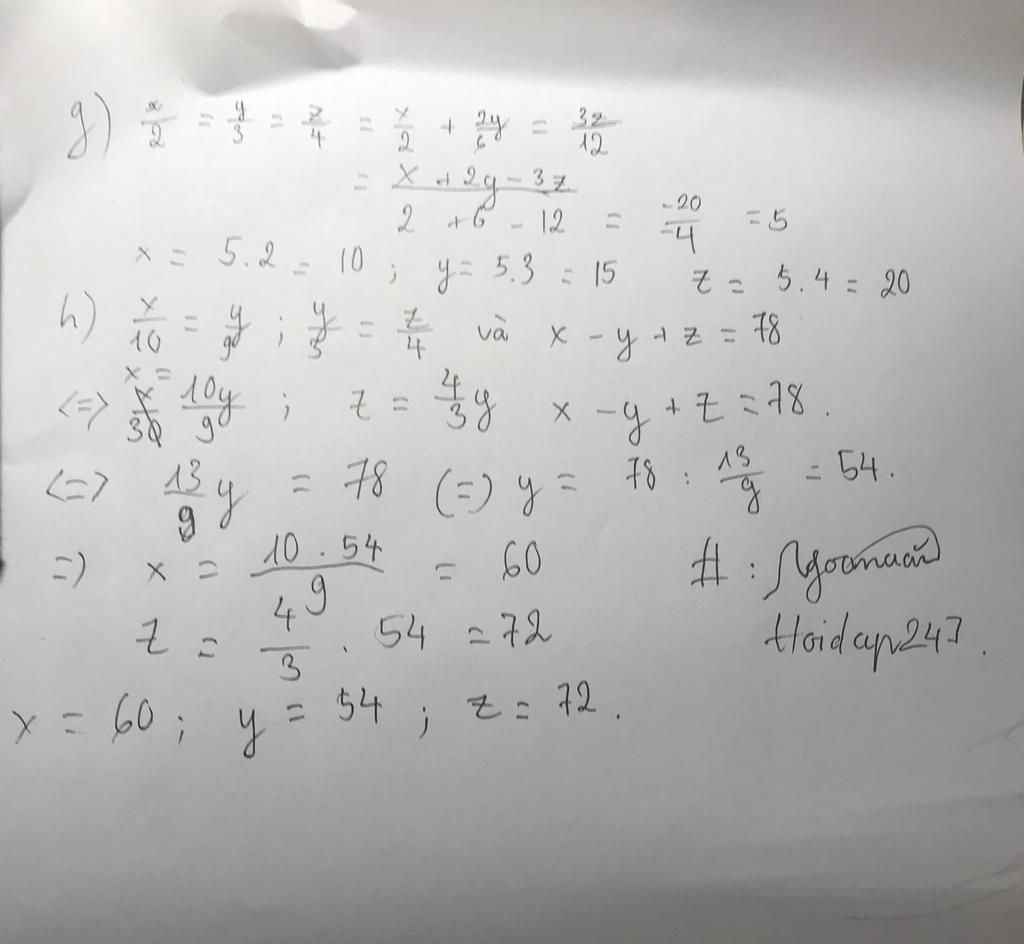 g) x/2 = y/3 = z/4 = x/2 + 2y/6 = 3z/12
= (x + 2y - 3z)/(2 + 6 - 12) = -20/-4 = 5
x = 5.2 = 10 ; y = 5.3 = 15 z = 5.4 = 20
h) x/10 = y/9 ; y/3 = z/4 và x - y + z = 78
<=> x = 10y/9 ; z = 4/3 y x - y + z = 78.
<=> 13/9 y = 78 (=) y = 78 : 13/9 = 54.
=) x = (10 . 54)/9 = 60 # :
z = 4/3 . 54 = 72 Hoidap247.
x = 60 ; y = 54 ; z = 72.